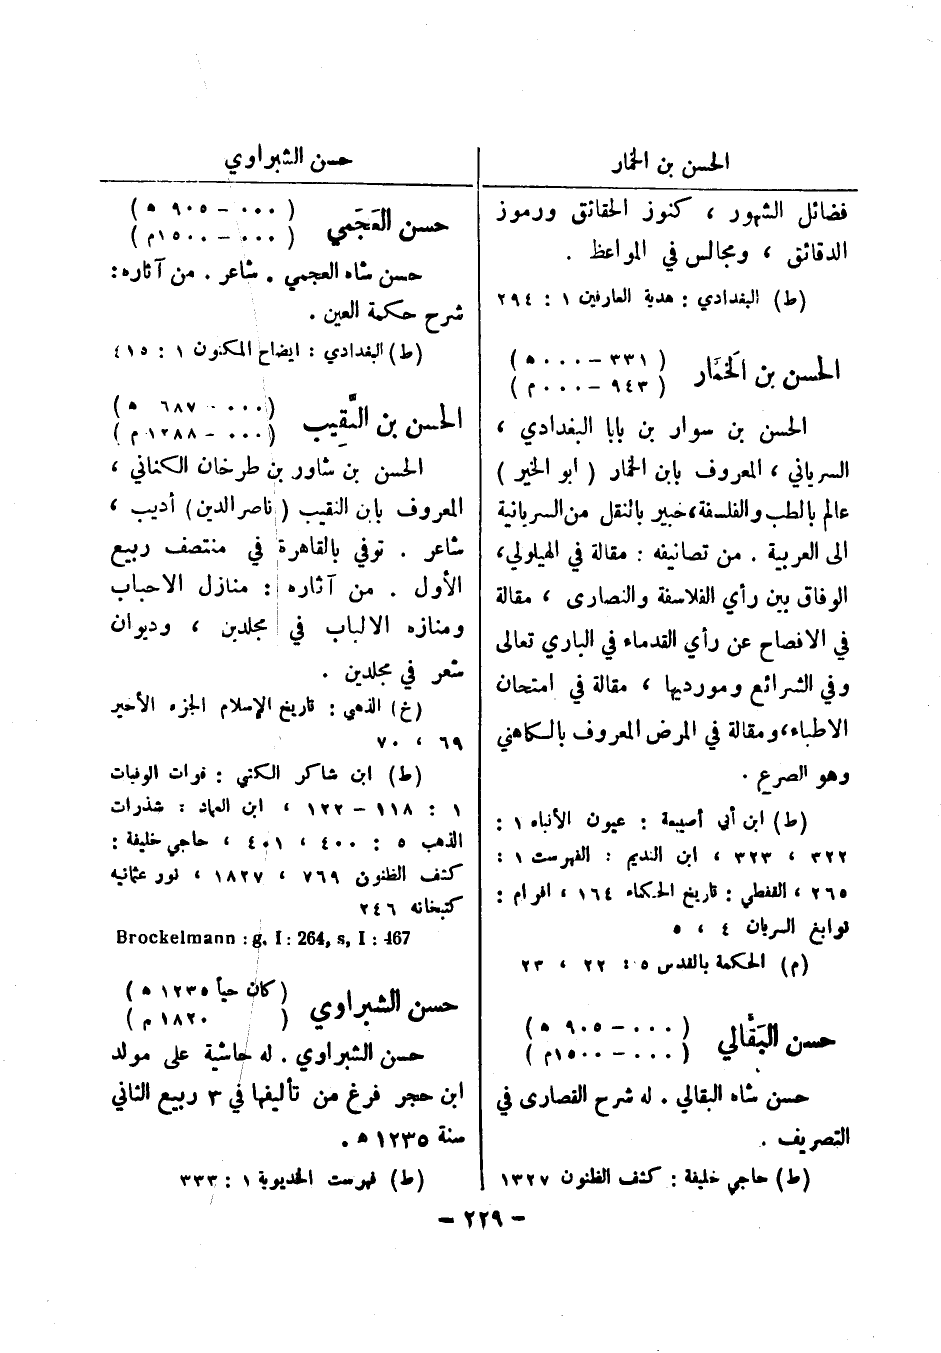 الحسن بن الخمار
فضائل الشهور ، كنوز الحقائق ورموز
الدقائق ، ومجالس في المواعظ .
(ط) البغدادي : هدية العارفين ١ : ٢٩٤
الحسن بن الخَمَّار
( ٣٣١ – ٠٠٠ ه )
( ٩٤٣ – ٠٠٠ م )
الحسن بن سوار بن بابا البغدادي ،
السرياني ، المعروف بابن الخمار ( ابو الخير )
عالم بالطب والفلسفة،خبير بالنقل من السريانية
الى العربية . من تصانيفه : مقالة في الهيلولي،
الوفاق بين رأي الفلاسفة والنصارى ، مقالة
في الافصاح عن رأي القدماء في الباري تعالى
وفي الشرائع ومورديها ، مقالة في امتحان
الاطباء،ومقالة في المرض المعروف بالكاهني
وهو الصرع .
(ط) ابن أبي أصيبعة : عيون الأنباء ١ :
٣٢٢ ، ٣٢٣ ، ابن النديم : الفهرست ١ :
٢٦٥ ، القفطي : تاريخ الحكماء ١٦٤ ، افرام :
نوابغ السريان ٤ ، ٥
(م) الحكمة بالقدس ٥ : ٢٢ ، ٢٣
حسن البَقَّالي
( ٠٠٠ – ٩٠٥ ه )
( ٠٠٠ – ١٥٠٠م )
حسن شاه البقالي . له شرح القصارى في
التصريف .
(ط) حاجي خليفة : كشف الظنون ١٣٢٧
حسن الشبراوي
حسن العَجَمي
( ٠٠٠ – ٩٠٥ ه )
( ٠٠٠ – ١٥٠٠م )
حسن شاه العجمي . شاعر . من آثاره:
شرح حكمة العين .
(ط) البغدادي : ايضاح المكنون ١ : ٤١٥
الحسن بن النَّقِيب
(٠٠٠ – ٦٨٧ ه )
(٠٠٠ – ١٢٨٨ م )
الحسن بن شاور بن طرخان الكناني ،
المعروف بابن النقيب ( ناصر الدين ) أديب ،
شاعر . توفي بالقاهرة في منتصف ربيع
الأول . من آثاره : منازل الاحباب
ومنازه الالباب في مجلدين ، وديوان
شعر في مجلدين .
(خ) الذهبي : تاريخ الإسلام الجزء الأخير
٦٩ ، ٧٠
(ط) ابن شاكر الكتبي : فوات الوفيات
١ : ١١٨ – ١٢٢ ، ابن العماد : شذرات
الذهب ٥ : ٤٠٠ ، ٤٠١ ، حاجي خليفة :
كشف الظنون ٧٦٩ ، ١٨٢٧ ، نور عثمانيه
كتبخانه ٢٤٦
Brockelmann : g, I : 264, s, I : 467
حسن الشبراوي
( كان حياً ١٢٣٥ ه )
( ١٨٢٠ م )
حسن الشبراوي . له حاشية على مولد
ابن حجر فرغ من تأليفها في ٣ ربيع الثاني
سنة ١٢٣٥ ه .
(ط) فهرست الخديوية ١ : ٣٣٣
– ٢٢٩ –